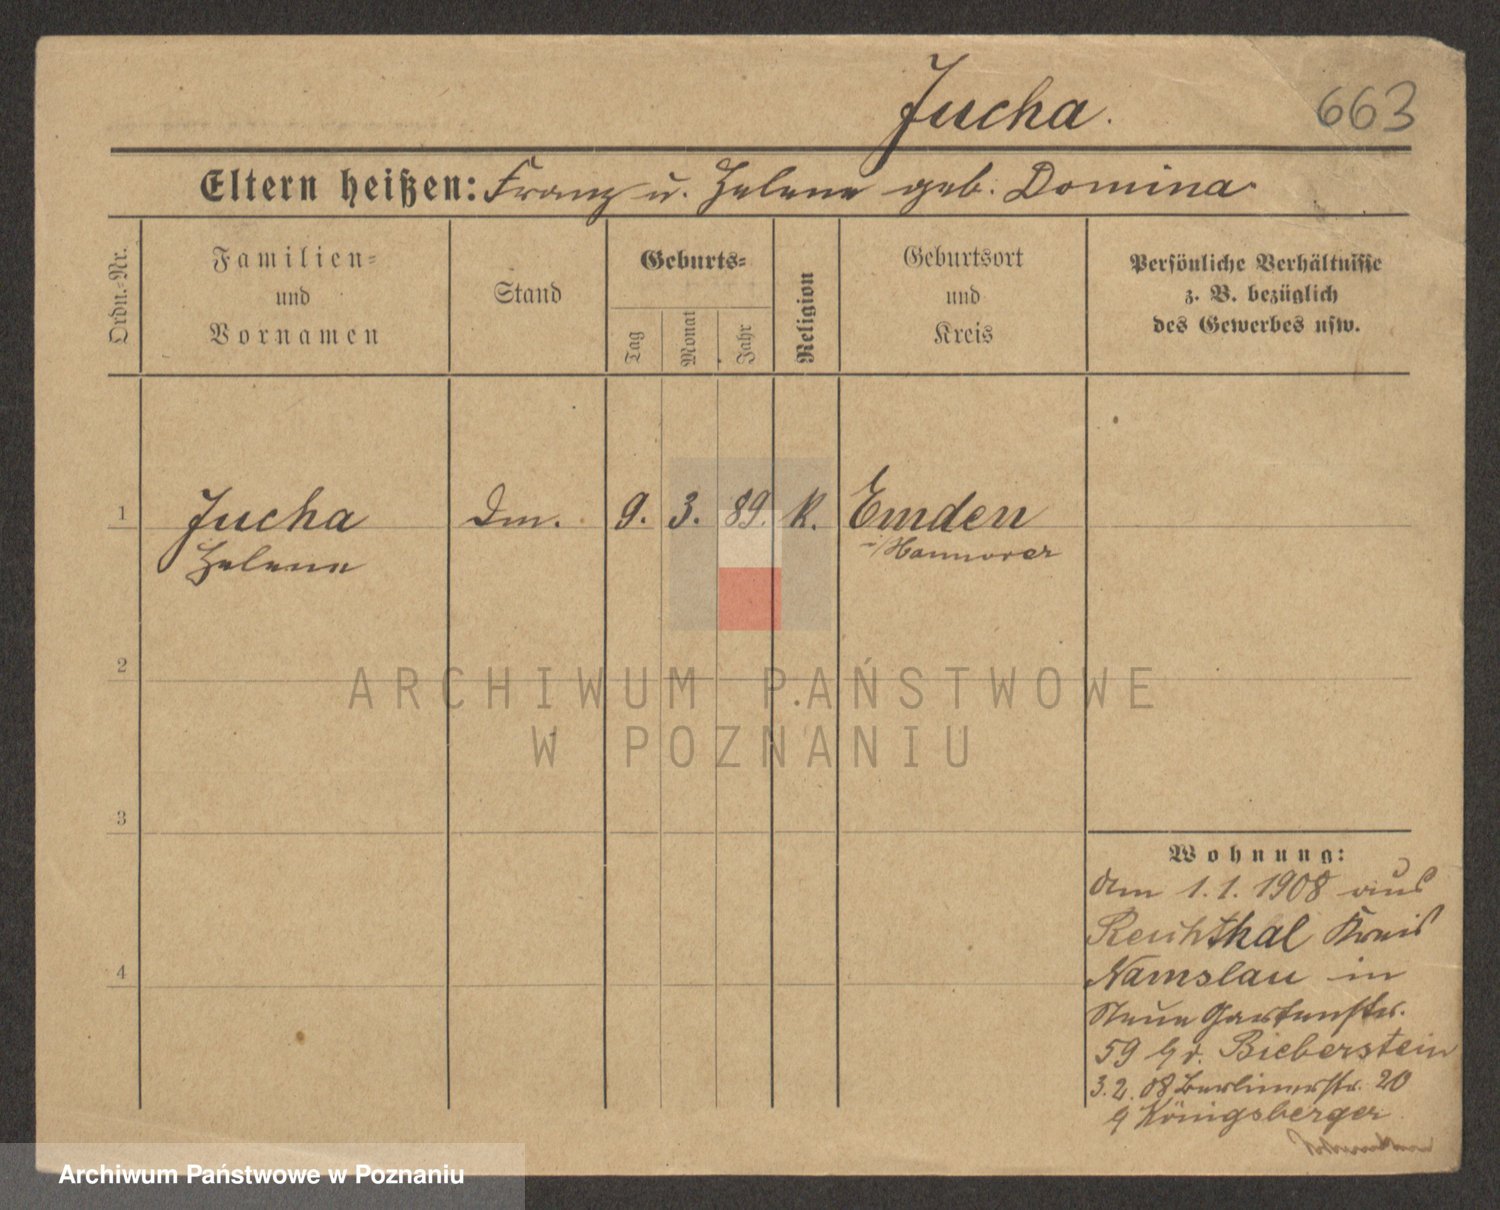 Jucha.
663
Eltern heißen: Franz u. Helene geb. Domina.
Ordn.-Nr.
Familien-
und
Vornamen
Stand
Geburts-
Tag
Monat
Jahr
Religion
Geburtsort
und
Kreis
Persönliche Verhältnisse
z. B. bezüglich
des Gewerbes usw.
1 Jucha Dm. 9. 3. 89. k. Emden
Helene i/Hannover
2
ARCHIWUM PAŃSTWOWE
W POZNANIU
3
Wohnung:
Am 1.1.1908 aus
Reichthal Kreis
4 Namslau in
Neue Gartenstr.
59 bei Bieberstein
3.2.08 Berlinerstr. 20
Königsberger
Archiwum Państwowe w Poznaniu